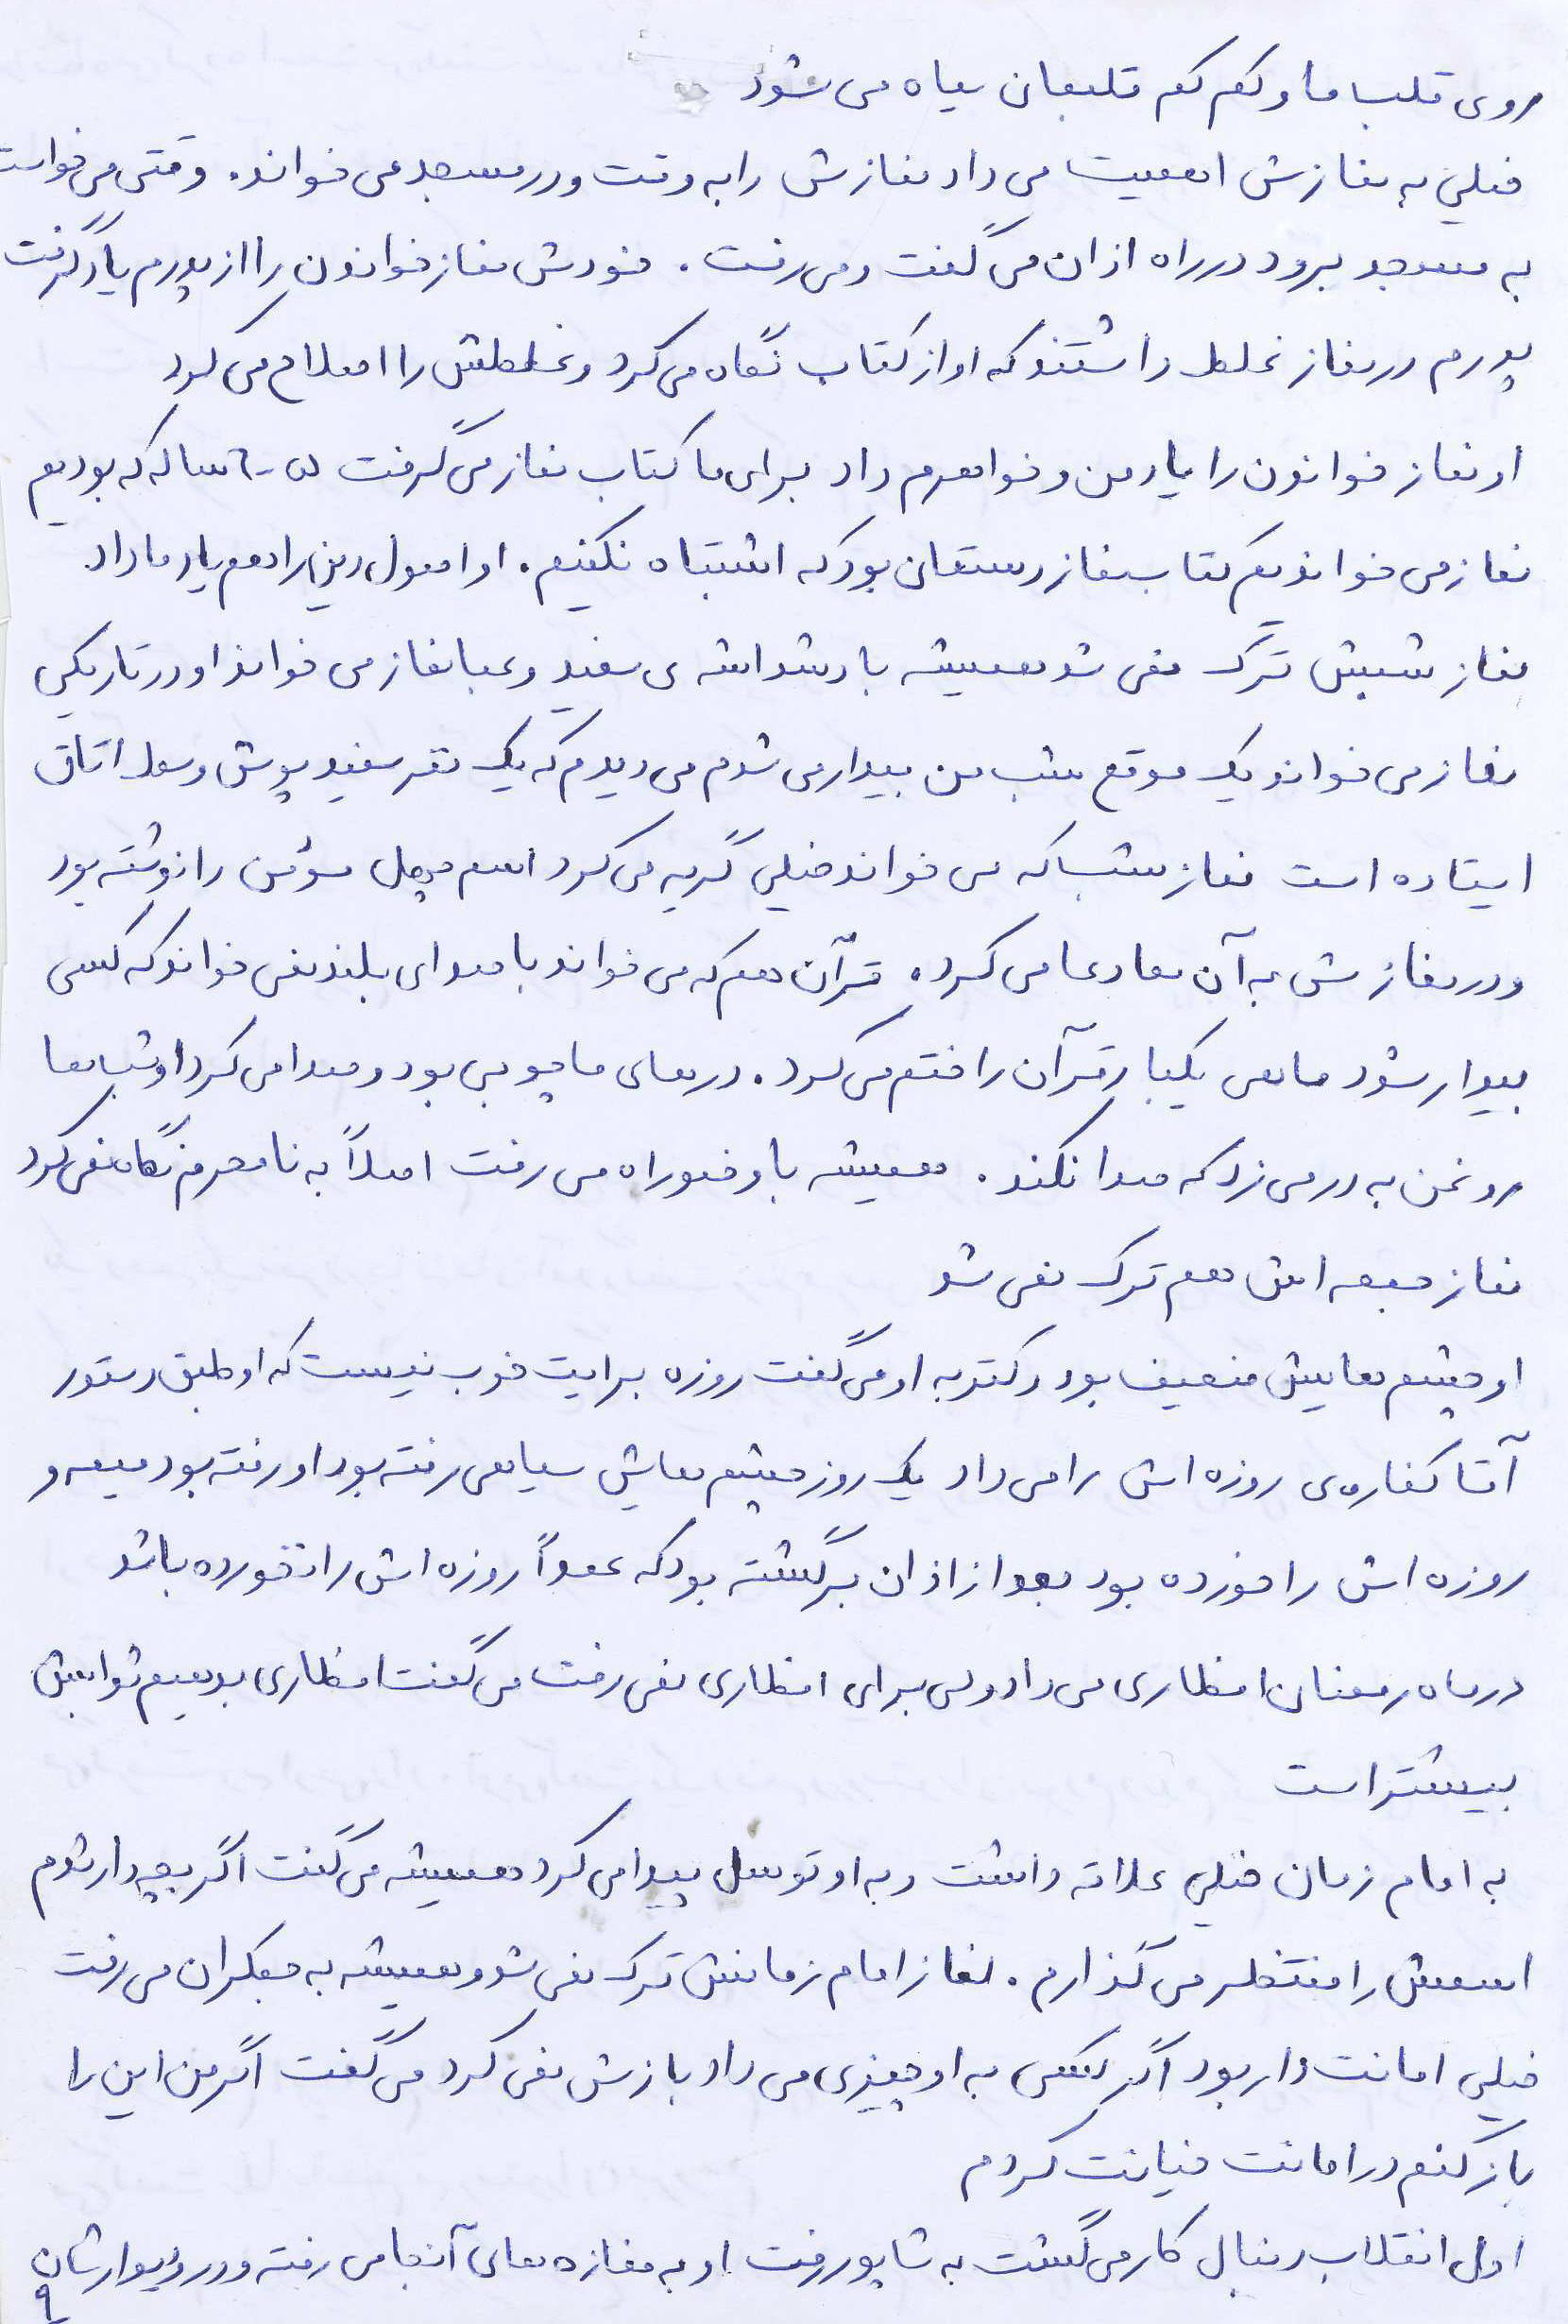 روی قلب ما و کم کم قلبمان سیاه می شود
خیلی به نمازش اهمیت می داد نمازش را به وقت و در مسجد می خواند. وقتی می خواست
به مسجد برود در راه اذان می گفت و می رفت. خودش نماز خواندن را از پدرم یاد گرفت
پدرم در نماز غلط داشتند که او از کتاب نگاه می کرد و غلطش را اصلاح می کرد
او نماز خواندن را یاد من و خواهرم داد برای ما کتاب نماز می گرفت ۵-۶ ساله که بودیم
نماز می خواندیم کتاب نماز دستمان بود که اشتباه نکنیم. او اصول دین را هم یاد ما داد.
نماز شبش ترک نمی شد همیشه با دشداشه ی سفید و عبا نماز می خواند او در تاریکی
نماز می خواند یک موقع شب من بیدار می شدم می دیدم که یک نفر سفید پوش وسط اتاق
ایستاده است نماز شب که می خواند خیلی گریه می کرد اسم چهل مؤمن را نوشته بود
و در نمازش به آن ها دعا می کرد. قرآن هم که می خواند با صدای بلند نمی خواند که کسی
بیدار شود ماهی یکبار قرآن را ختم می کرد. درهای ما چوبی بود و صدا می کرد او شب ها
روغن به در می زد که صدا نکند. همیشه با وضو راه می رفت اصلاً به نامحرم نگاه نمی کرد
نماز جمعه اش هم ترک نمی شد
او چشم هایش ضعیف بود دکتر به او می گفت روزه برایت خوب نیست که او طبق دستور
آقا کفاره ی روزه اش را می داد یک روز چشم هایش سیاهی رفته بود او رفته بود میمه و
روزه اش را خورده بود بعد از اذان برگشته بود که عمداً روزه اش را نخورده باشد
در ماه رمضان افطاری می داد ولی برای افطاری نمی رفت می گفت افطاری بدهیم ثوابش
بیشتر است
به امام زمان خیلی علاقه داشت و به او توسل پیدا می کرد همیشه می گفت اگر بچه دار شدم
اسمش را منتظر می گذارم. نماز امام زمانش ترک نمی شد و همیشه به جمکران می رفت
خیلی امانت دار بود اگر کسی به او چیزی می داد بازش نمی کرد می گفت اگر من این را
باز کنم در امانت خیانت کردم
اول انقلاب دنبال کار می گشت به شاپور رفت او به مغازه های آنجا می رفته و در و دیوارشان
۹